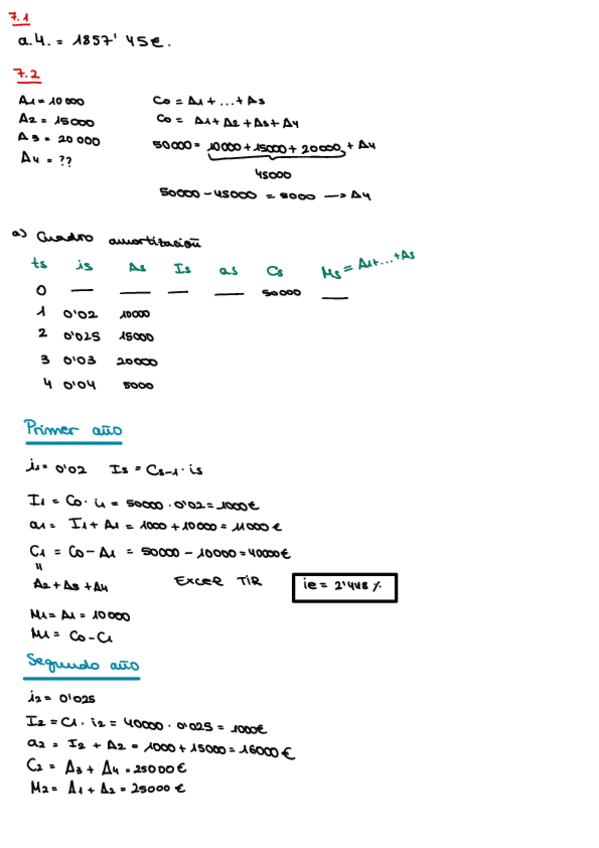 7.1
a.4. = 1857' 45€.
7.2
A1 = 10000
A2 = 15000
A3 = 20000
A4 = ??
Co = A1 + ... + As
Co = A1 + A2 + A3 + A4
50000 = 10000 + 15000 + 20000 + A4
45000
50000 - 45000 = 5000 → A4
a) Cuadro amortización
ts is As Is as Cs Ms = A1 + ... + As
0 — — — — 50000 —
1 0'02 10000
2 0'025 15000
3 0'03 20000
4 0'04 5000
Primer año
i1 = 0'02 Is = Cs-1 · is
I1 = Co · i1 = 50000 · 0'02 = 1000€
a1 = I1 + A1 = 1000 + 10000 = 11000€
C1 = Co - A1 = 50000 - 10000 = 40000€
"
A2 + A3 + A4
EXCER TIR
ie = 2'448 %
M1 = A1 = 10000
M1 = Co - C1
Segundo año
i2 = 0'025
I2 = C1 · i2 = 40000 · 0'025 = 1000€
a2 = I2 + A2 = 1000 + 15000 = 16000€
C2 = A3 + A4 = 25000€
M2 = A1 + A2 = 25000€